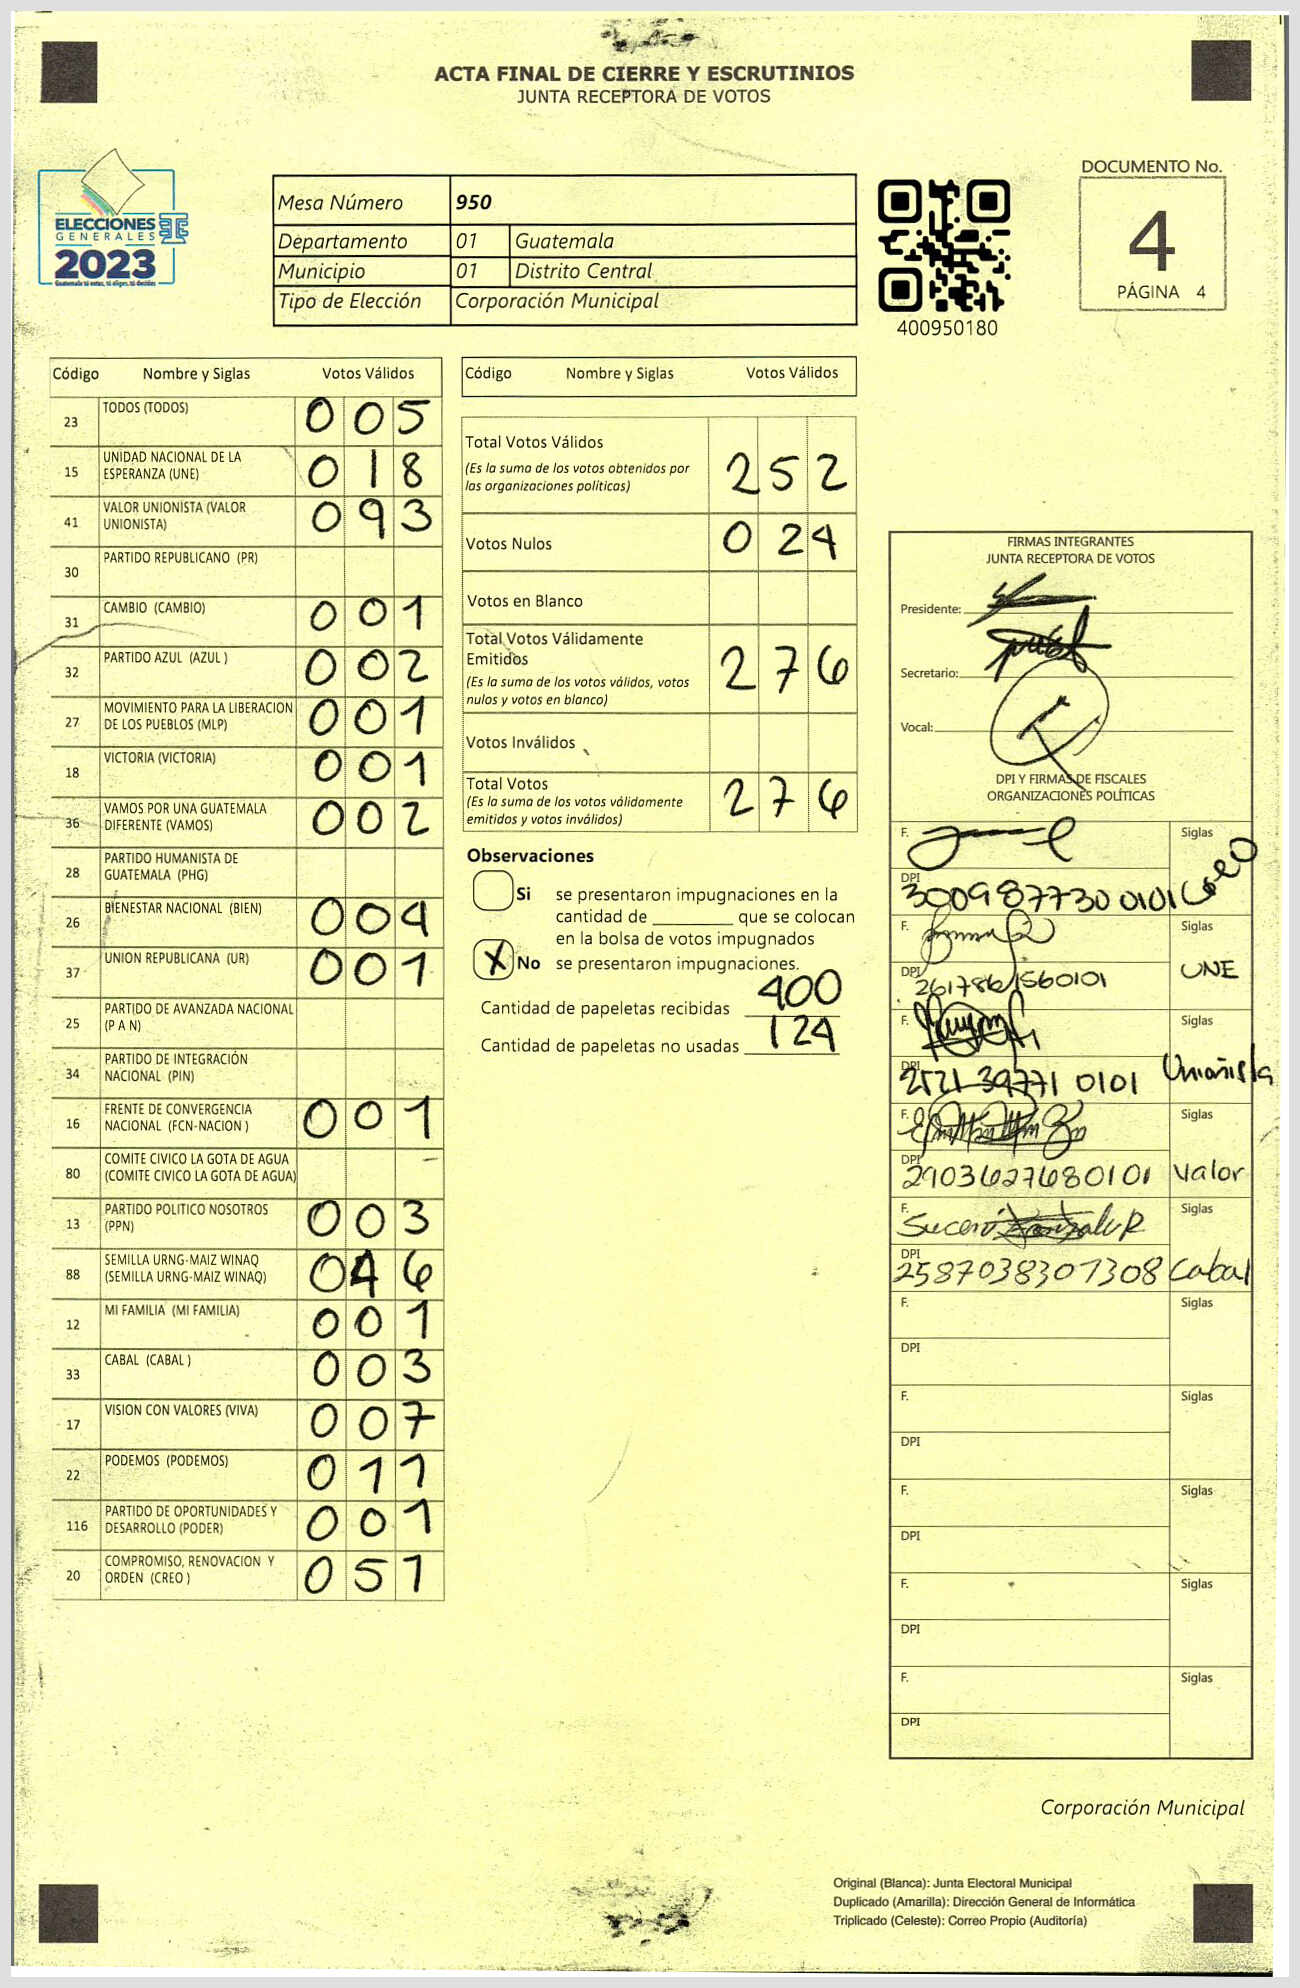 ACTA FINAL DE CIERRE Y ESCRUTINIOS
JUNTA RECEPTORA DE VOTOS
ELECCIONES
GENERALES
2023
Guatemala tú votas, tú eliges, tú decides
Mesa Número 950
Departamento 01 Guatemala
Municipio 01 Distrito Central
Tipo de Elección Corporación Municipal
400950180
DOCUMENTO No.
4
PÁGINA 4
Código Nombre y Siglas Votos Válidos
23 TODOS (TODOS) 005
15 UNIDAD NACIONAL DE LA
ESPERANZA (UNE) 018
41 VALOR UNIONISTA (VALOR
UNIONISTA) 093
30 PARTIDO REPUBLICANO (PR)
31 CAMBIO (CAMBIO) 001
32 PARTIDO AZUL (AZUL ) 002
27 MOVIMIENTO PARA LA LIBERACION
DE LOS PUEBLOS (MLP) 001
18 VICTORIA (VICTORIA) 001
36 VAMOS POR UNA GUATEMALA
DIFERENTE (VAMOS) 002
28 PARTIDO HUMANISTA DE
GUATEMALA (PHG)
26 BIENESTAR NACIONAL (BIEN) 004
37 UNION REPUBLICANA (UR) 001
25 PARTIDO DE AVANZADA NACIONAL
(P A N)
34 PARTIDO DE INTEGRACIÓN
NACIONAL (PIN)
16 FRENTE DE CONVERGENCIA
NACIONAL (FCN-NACION ) 001
80 COMITE CIVICO LA GOTA DE AGUA
(COMITE CIVICO LA GOTA DE AGUA)
13 PARTIDO POLITICO NOSOTROS
(PPN) 003
88 SEMILLA URNG-MAIZ WINAQ
(SEMILLA URNG-MAIZ WINAQ) 046
12 MI FAMILIA (MI FAMILIA) 001
33 CABAL (CABAL ) 003
17 VISION CON VALORES (VIVA) 007
22 PODEMOS (PODEMOS) 011
116 PARTIDO DE OPORTUNIDADES Y
DESARROLLO (PODER) 001
20 COMPROMISO, RENOVACION Y
ORDEN (CREO ) 051
Código Nombre y Siglas Votos Válidos
Total Votos Válidos
(Es la suma de los votos obtenidos por
las organizaciones políticas) 252
Votos Nulos 024
Votos en Blanco
Total Votos Válidamente
Emitidos
(Es la suma de los votos válidos, votos
nulos y votos en blanco) 276
Votos Inválidos
Total Votos
(Es la suma de los votos válidamente
emitidos y votos inválidos) 276
Observaciones
Si se presentaron impugnaciones en la
cantidad de ________ que se colocan
en la bolsa de votos impugnados
X No se presentaron impugnaciones.
Cantidad de papeletas recibidas 400
Cantidad de papeletas no usadas 124
FIRMAS INTEGRANTES
JUNTA RECEPTORA DE VOTOS
Presidente:
Secretario:
Vocal:
DPI Y FIRMAS DE FISCALES
ORGANIZACIONES POLÍTICAS
F. Siglas
DPI 3009877300101 Creo
F. Siglas
DPI 2617861560101 UNE
F. Siglas
DPI 2521397710101 Unionista
F. Siglas
DPI 2903627680101 Valor
F. Siglas
DPI 2587038301308 Cabal
F. Siglas
DPI
F. Siglas
DPI
F. Siglas
DPI
F. Siglas
DPI
F. Siglas
DPI
Corporación Municipal
Original (Blanca): Junta Electoral Municipal
Duplicado (Amarilla): Dirección General de Informática
Triplicado (Celeste): Correo Propio (Auditoría)